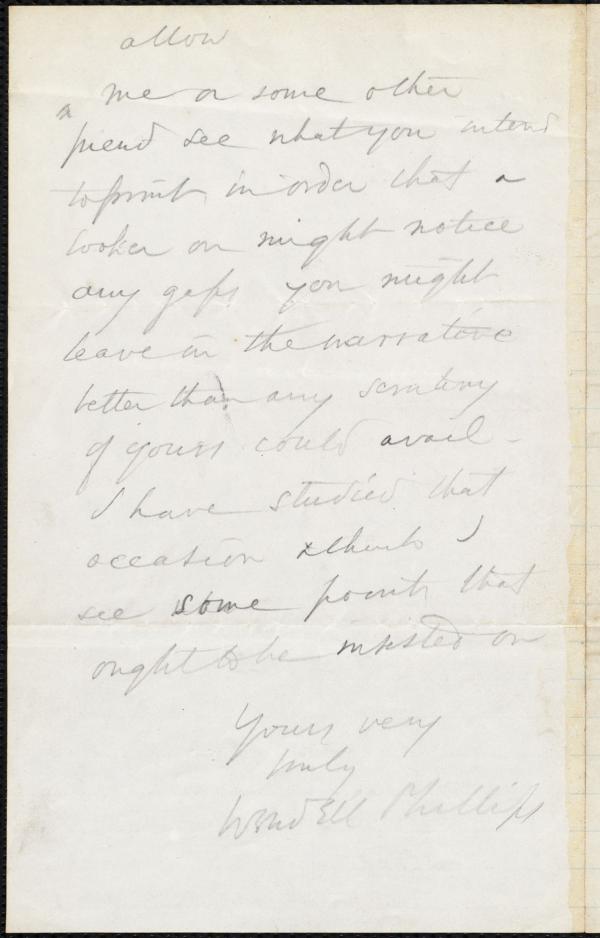 allow
me or some other
friend see what you intend
to print in order that a
looker on might notice
any gaps you might
leave in the narrative
better than any scrutiny
of yours could avail -
I have studied that
occasion & think I
see some points that
ought to be insisted on
Yours very
truly
Wendell Phillips